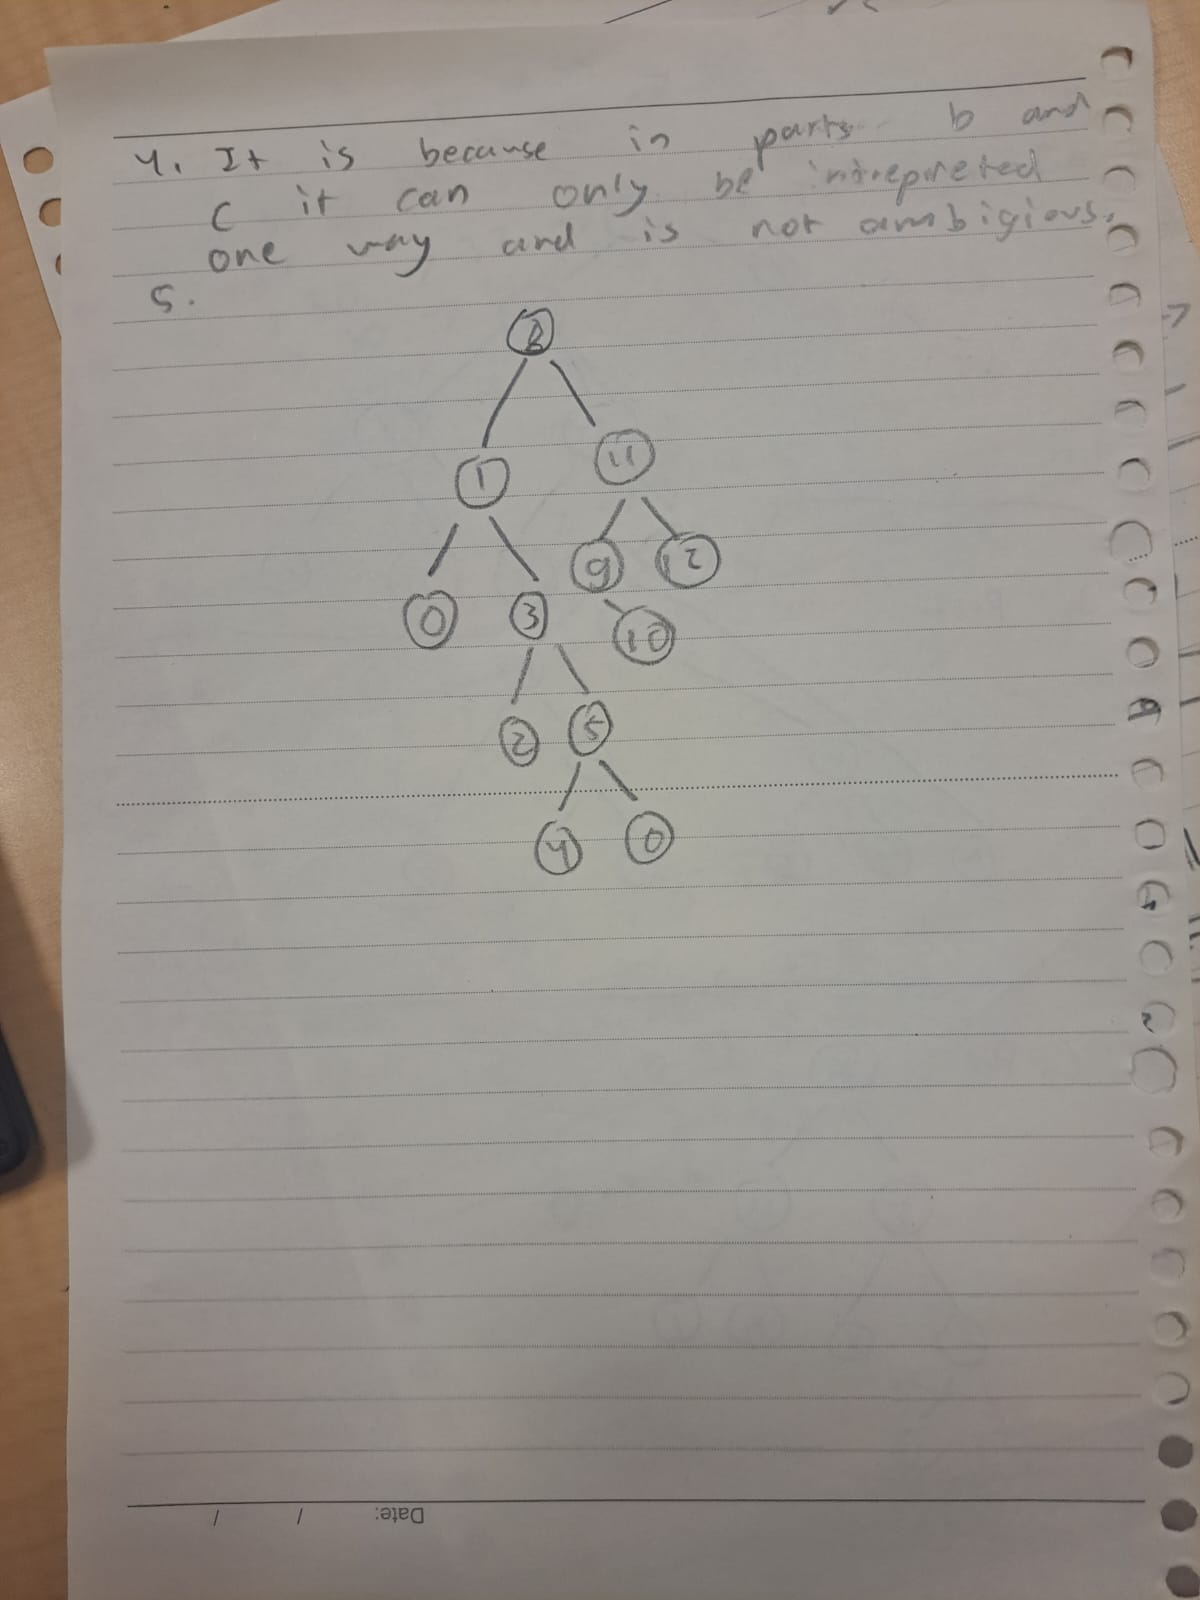 4. It is because in parts b and
c it can only be intrepreted
one way and is not ambigious.
5.
8
1 11
0 3 9 12
10
2 5
4 0
Date: / /